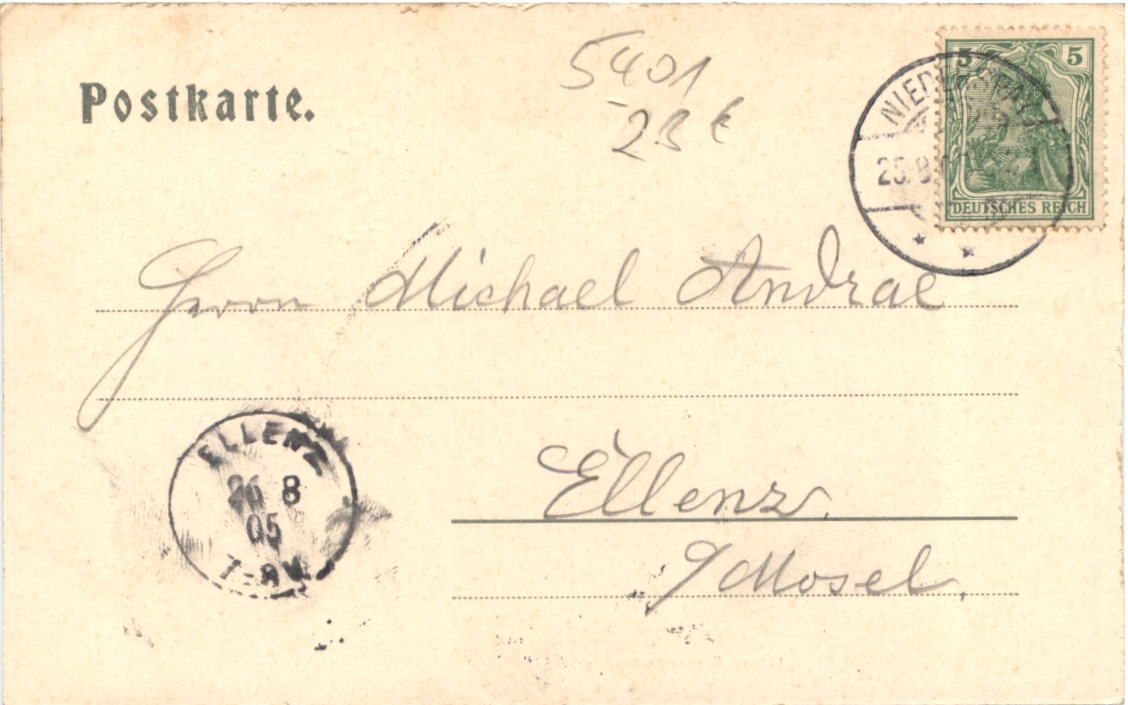 Postkarte.
5401
23 €
5 5
DEUTSCHES REICH
25.8.
Herrn Michael Andrae
ELLENZ
26 8
05
7-8V
Ellenz.
a/Mosel.